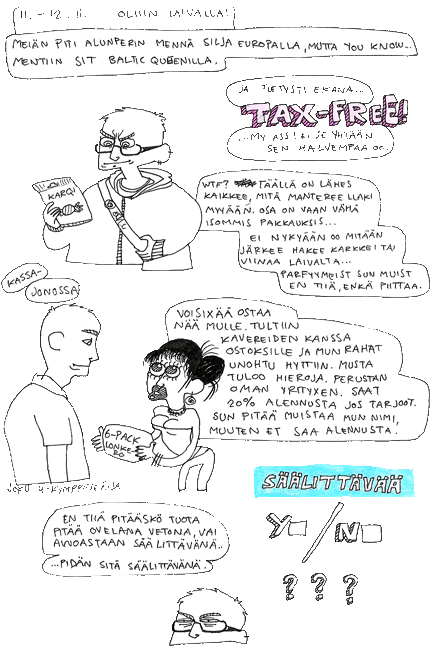 11. - 12. 11. OLTIIN LAIVALLA!
MEIÄN PITI ALUNPERIN MENNÄ SILJA EUROPALLA, MUTTA YOU KNOW...
MENTIIN SIT BALTIC QUEENILLA.
JA TIETYSTI EKANA...
TAX-FREE!
...MY ASS! EI SE YHTÄÄN
SEN HALVEMPAA OO.
KARQ!
WTF? TÄÄLLÄ ON LÄHES
KAIKKEE, MITÄ MANTEREELLAKI
MYYÄÄN. OSA ON VAAN VÄHÄ
ISOMMIS PAKKAUKSIS...
EI NYKYÄÄN OO MITÄÄN
JÄRKEE HAKEE KARKKEI TAI
VIINAA LAIVALTA...
PARFYYMEIST SUN MUIST
EN TIIÄ, ENKÄ PIITTAA.
KASSA-
JONOSSA
VOISIXÄÄ OSTAA
NÄÄ MULLE. TULTIIN
KAVEREIDEN KANSSA
OSTOKSILLE JA MUN RAHAT
UNOHTU HYTTIIN. MUSTA
TULOO HIEROJA. PERUSTAN
OMAN YRITYXEN. SAAT
20% ALENNUSTA JOS TARJOOT.
SUN PITÄÄ MUISTAA MUN NIMI,
MUUTEN ET SAA ALENNUSTA.
6-PACK
LONKE-
RO
JOKU 4-KYMPPINEN ÄIJÄ
SÄÄLITTÄVÄÄ
Y / N
? ? ?
EN TIIÄ PITÄÄSKÖ TUOTA
PITÄÄ OVELANA VETONA, VAI
AVNOASTAAN SÄÄLITTÄVÄNÄ..
...PIDÄN SITÄ SÄÄLITTÄVÄNÄ.